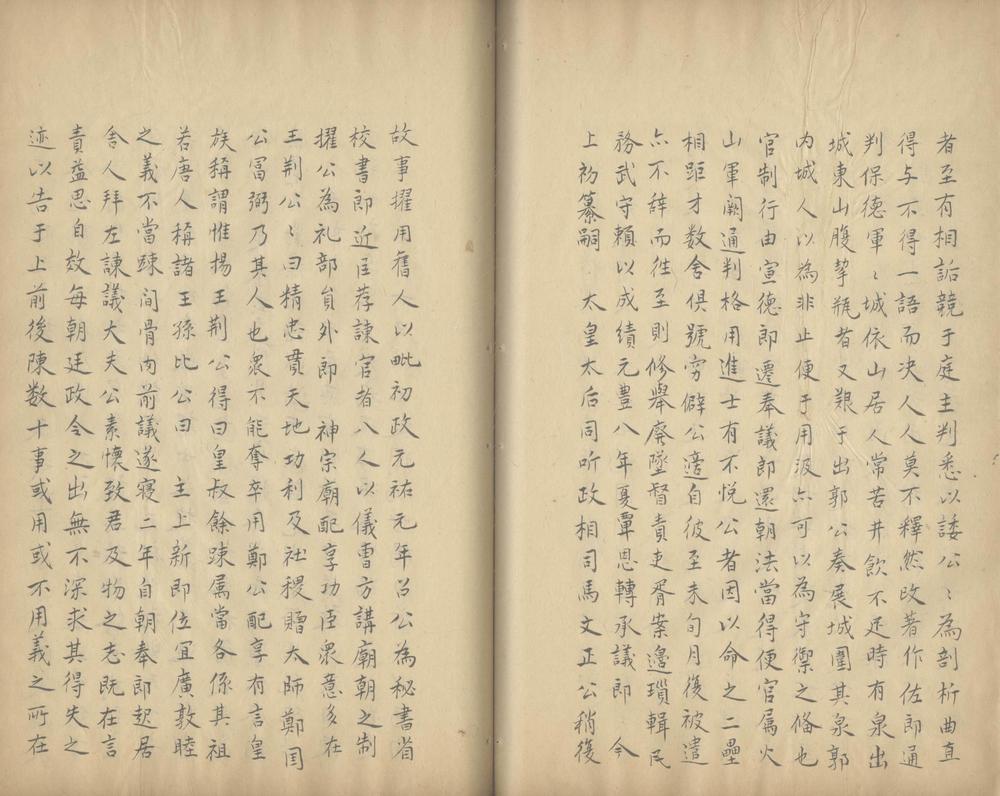 者至有相詬競于庭主判悉以諉公〻為剖析曲直
得与不得一語而决人人莫不釋然改著作佐郎通
判保德軍〻城依山居人常苦井飲不足時有泉出
城東山腹挈瓶者又艱于出郭公奏展城圍其泉郭
内城人以為非止便于用汲亦可以為守禦之俻也
官制行由宣德郎遷奉議郎還朝法當得便官属火
山軍闕通判格用進士有不悦公者因以命之二壘
相距才数舍俱號穷僻公適自彼至未旬月復被遣
亦不辞而徃至則修舉廢墜督責吏胥案邊瑣輯民
務武守頼以成績元豊八年覃恩轉承議郎 今
上初纂嗣 太皇太后同听政相司馬文正公稍復
故事擢用舊人以毗初政元祐元年召公為秘書省
校書郎近臣荐諫官者八人以儀曹方講廟朝之制
擢公為礼部貟外郎 神宗廟配享功臣衆意多在
王荆公〻曰精忠貫天地功利及社稷贈太師 鄭国
公冨弼乃其人也衆不能奪卒用鄭公配享有言皇
族稱謂惟揚王荆公得曰皇叔餘踈属當各係其祖
若唐人稱諸王孫比公曰 主上新即位宜廣敦睦
之義不當踈間骨肉前議遂寝二年自朝奉郎起居
舎人拜左諫議大夫公素懐致君及物之志既在言
責益思自效每朝廷政令之出無不深求其得失之
迹以告于上前後陳数十事或用或不用義之所在